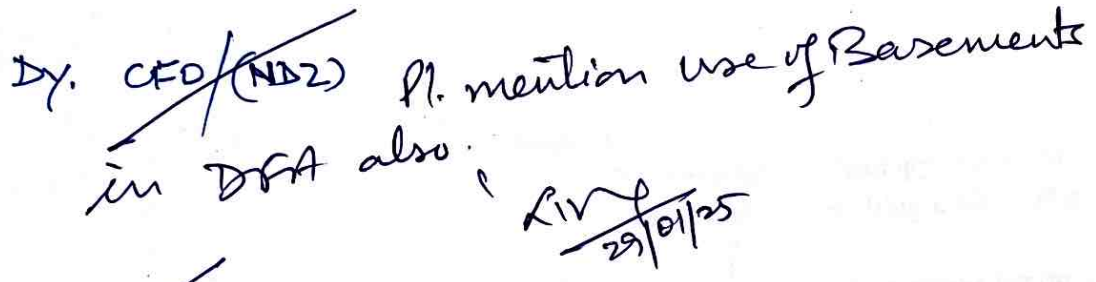 Dy. CFO/(NDZ) Pl. mention use of Basements
in DFA also.
29/01/25